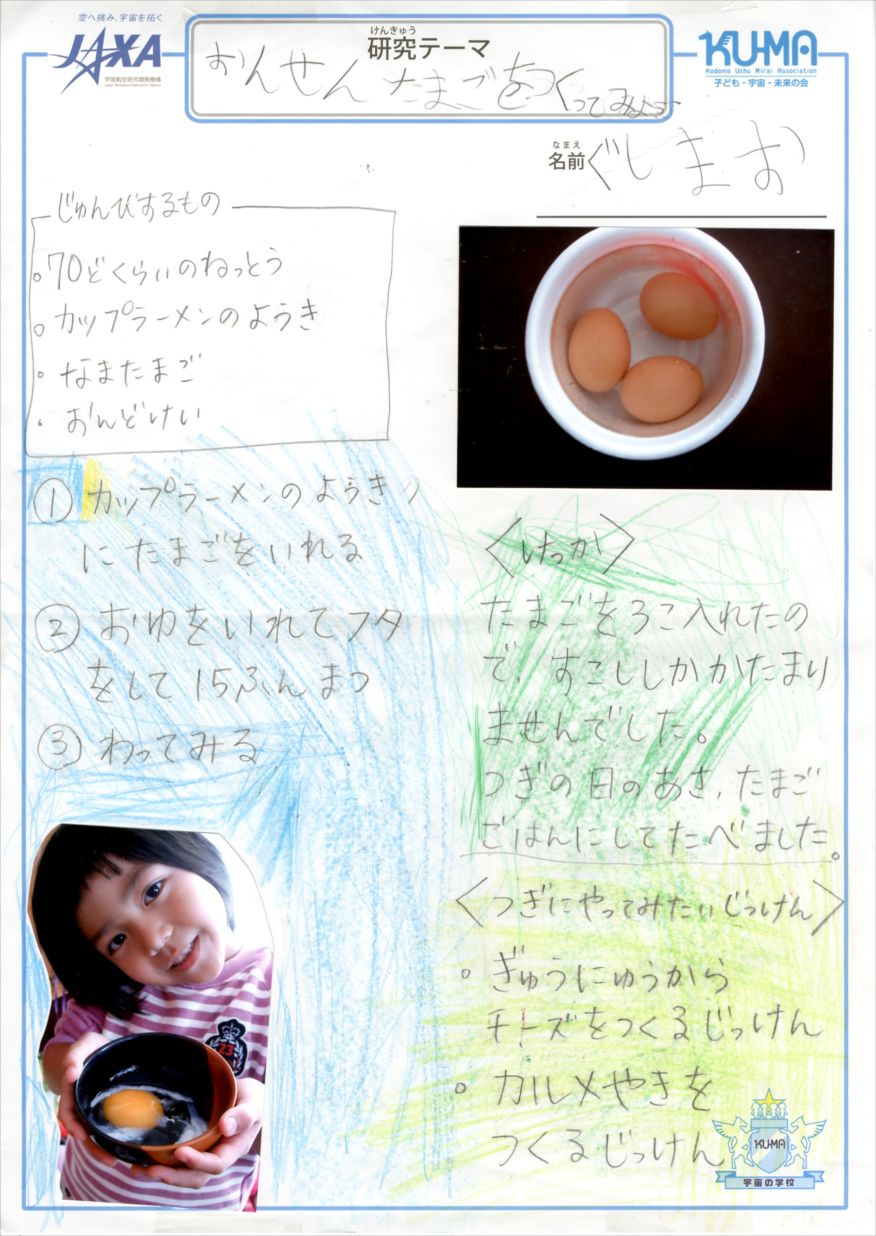 空へ挑み、宇宙を拓く
JAXA
宇宙航空研究開発機構
Japan Aerospace Exploration Agency
けんきゅう
研究テーマ
おんせんたまごをつくってみよう
KU-MA
Kodomo Uchu Mirai Association
子ども・宇宙・未来の会
なまえ
名前
ぐしまお
じゅんびするもの
。70どくらいのねっとう
。カップラーメンのようき
。なまたまご
・おんどけい
① カップラーメンのようき
にたまごをいれる
② おゆをいれてフタ
をして15ふんまつ
③ わってみる
〈けっか〉
たまごを3こ入れたの
で、すこししかかたまり
ませんでした。
つぎの日のあさ、たまご
ごはんにしてたべました。
〈つぎにやってみたいじっけん〉
。ぎゅうにゅうから
チーズをつくるじっけん
。カルメやきを
つくるじっけん
23
KU-MA
宇宙の学校